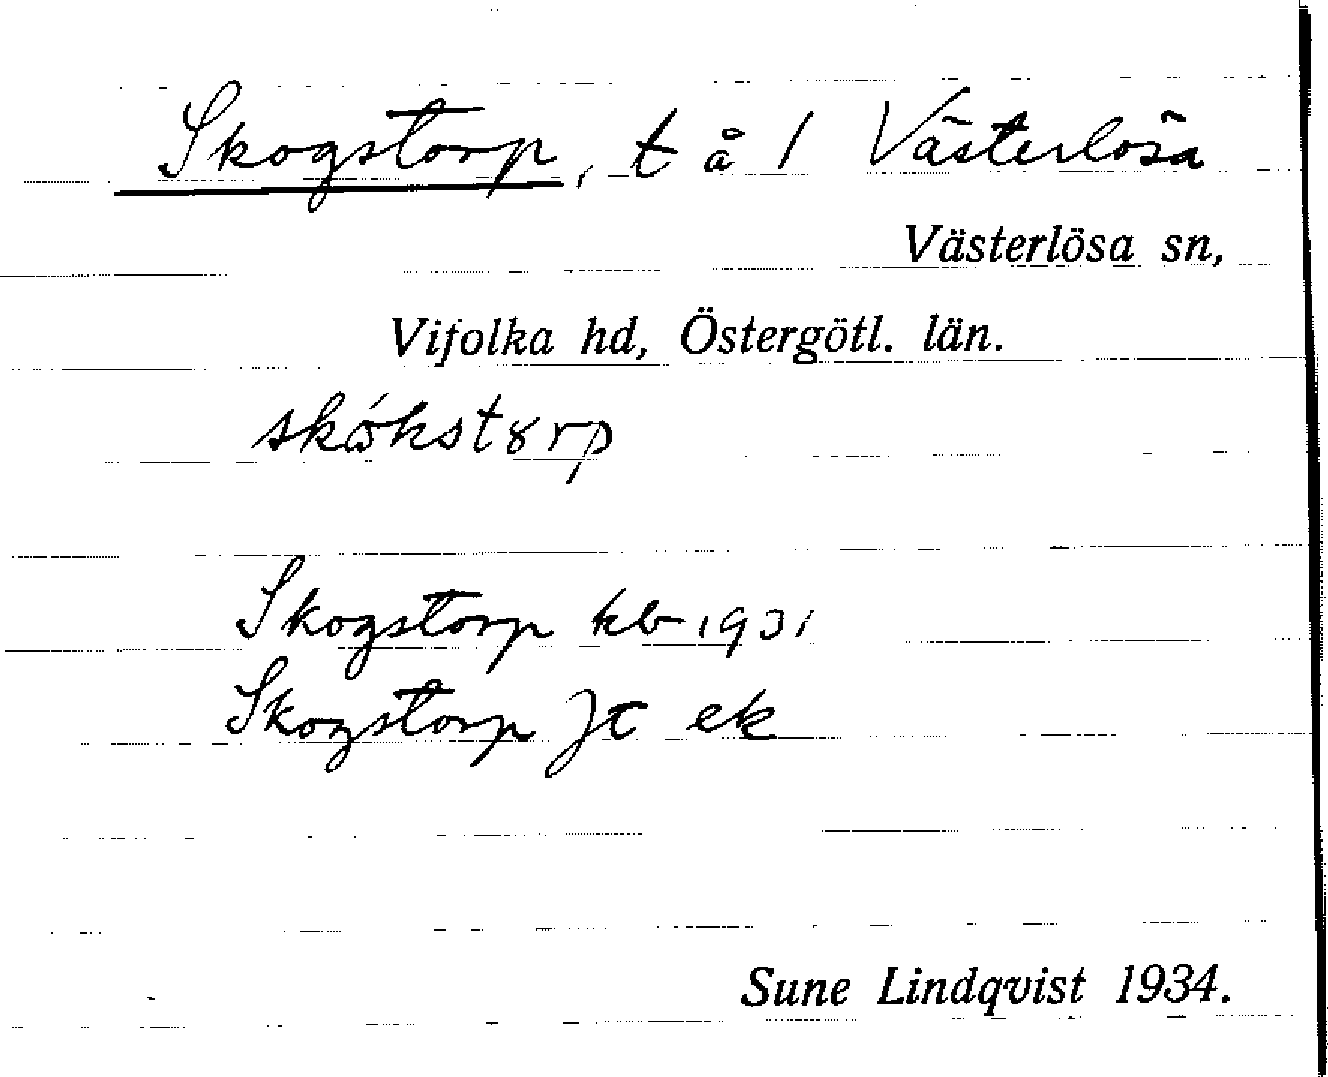 Skogstorp, t å 1 Västerlösa
Västerlösa sn,
Vifolka hd, Östergötl. län.
skókstorp
Skogstorp kb 1931
Skogstorp Jt ek
Sune Lindqvist 1934.